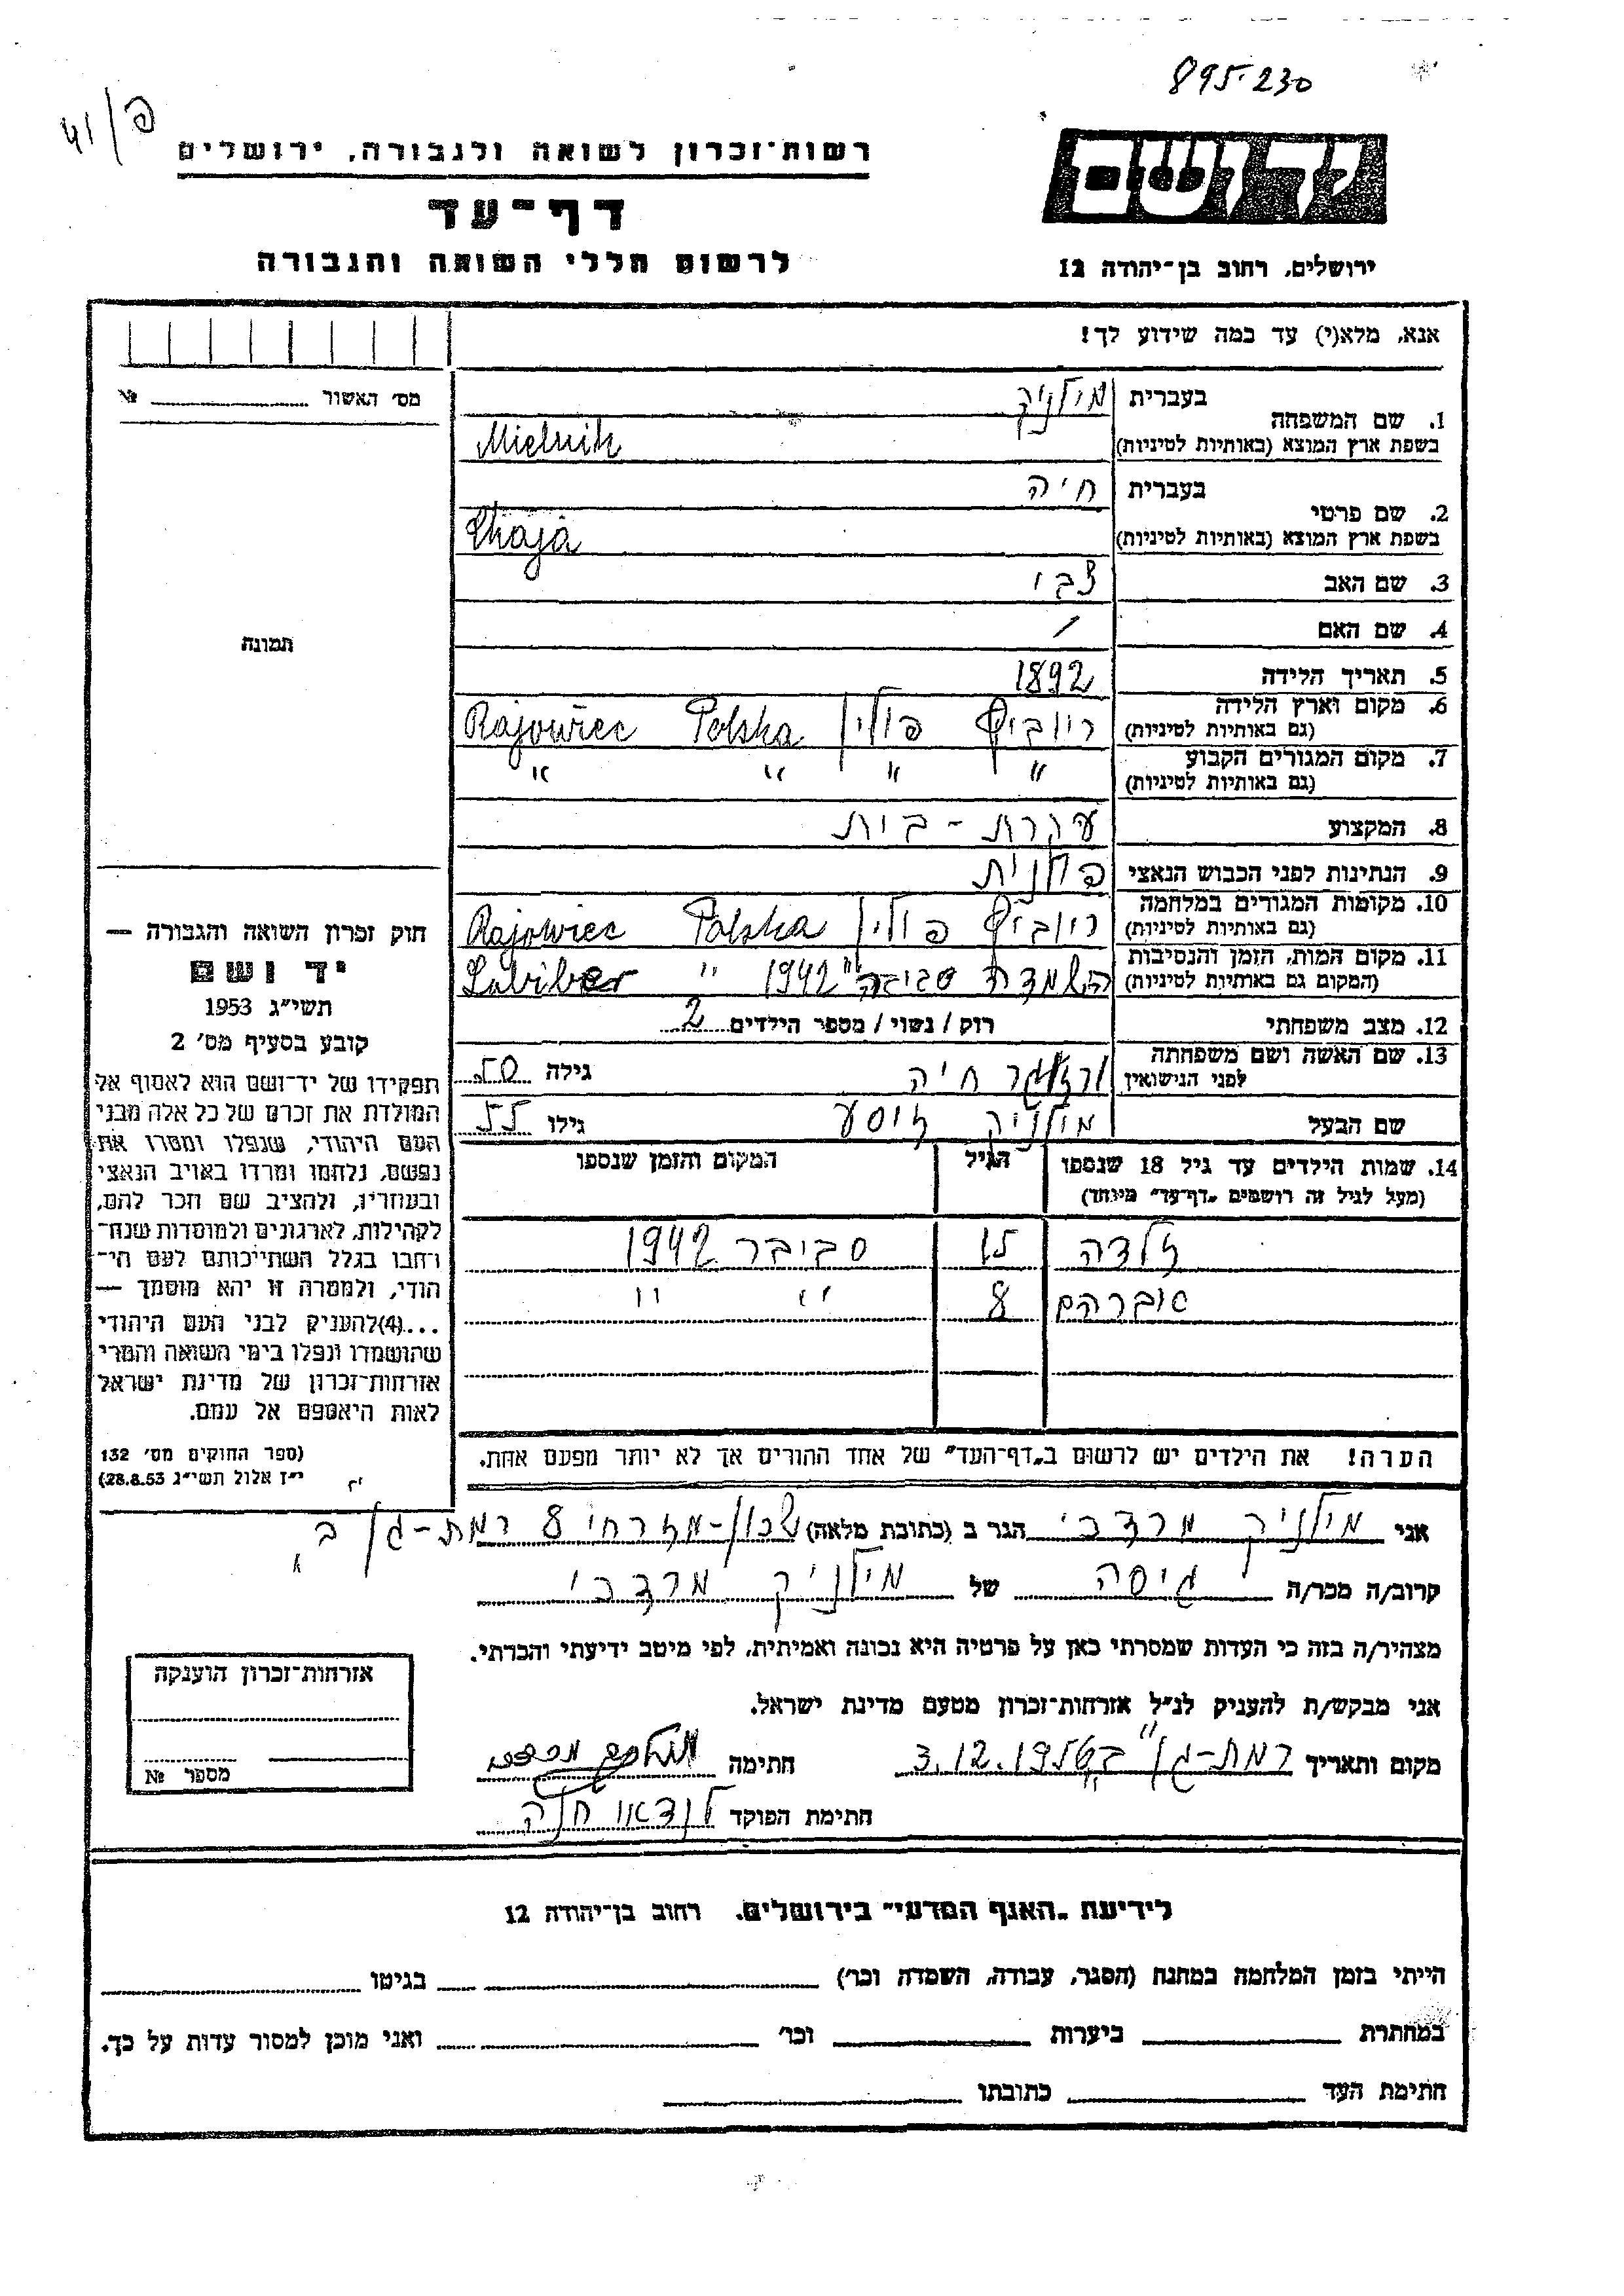 895-230
פ/41
יד ושם
רשות־זכרון לשואה ולגבורה, ירושלים
דף־עד
לרשום חללי השואה והגבורה
ירושלים, רחוב בן־יהודה 12
אנא, מלא(י) עד כמה שידוע לך!
מס׳ האשור № 
1. שם המשפחה
בעברית מילניק
בשפת ארץ המוצא (באותיות לטיניות) Mielnik
2. שם פרטי
בעברית חיה
בשפת ארץ המוצא (באותיות לטיניות) Chaja
3. שם האב צבי
4. שם האם /
5. תאריך הלידה 1892
6. מקום וארץ הלידה
(גם באותיות לטיניות) ריוביץ פולין Rajowiec Polska
7. מקום המגורים הקבוע
(גם באותיות לטיניות) " " " "
8. המקצוע עקרת-בית
9. הנתינות לפני הכבוש הנאצי פולנית
10. מקומות המגורים במלחמה
(גם באותיות לטיניות) ריוביץ פולין Rajowiec Polska
11. מקום המות, הזמן והנסיבות
(המקום גם באותיות לטיניות) השמדה סביבר 1942 "
12. מצב משפחתי רוק / נשוי / מספר הילדים 2
13. שם האשה ושם משפחתה
לפני הנישואין חיה גילה 50
שם הבעל מילניק זיסע גילו 55
14. שמות הילדים עד גיל 18 שנספו הגיל המקום והזמן שנספו
(מעל לגיל זה רושמים „דף־עד״ מיוחד)
זלדה 15 סביבר 1942
אברהם 8 " "
הערה! את הילדים יש לרשום ב„דף־העד״ של אחד ההורים אך לא יותר מפעם אחת.
תמונה
חוק זכרון השואה והגבורה —
יד ושם
תשי״ג 1953
קובע בסעיף מס׳ 2
תפקידו של יד־ושם הוא לאסוף אל
המולדת את זכרם של כל אלה מבני
העם היהודי, שנפלו ומסרו את
נפשם, נלחמו ומרדו באויב הנאצי
ובעוזריו, ולהציב שם וזכר להם,
לקהילות, לארגונים ולמוסדות שנח־
רחבו בגלל השתייכותם לעם הי־
הודי, ולמטרה זו יהא מוסמך —
...(4)להעניק לבני העם היהודי
שהושמדו ונפלו בימי השואה והמרי
אזרחות־זכרון של מדינת ישראל
לאות היאספם אל עמם.
(ספר החוקים מס׳ 132
י״ז אלול תשי״ג 28.8.53)
אני מילניק מרדכי הגר ב (כתובת מלאה) שכון-מזרחי 8 רמת-גן ב'
קרוב/ה מכר/ה גיסה של מילניק מרדכי
מצהיר/ה בזה כי העדות שמסרתי כאן על פרטיה היא נכונה ואמיתית, לפי מיטב ידיעתי והכרתי.
אני מבקש/ת להעניק לנ״ל אזרחות־זכרון מטעם מדינת ישראל.
מקום ותאריך רמת-גן 3.12.1956 חתימה
חתימת הפוקד לנדאו חנה
אזרחות־זכרון הוענקה
מספר №
לידיעת „האגף המדעי״ בירושלים. רחוב בן־יהודה 12
הייתי בזמן המלחמה במחנה (הסגר, עבודה, השמדה וכו׳) בגיטו
במחתרת ביערות וכו׳ ואני מוכן למסור עדות על כך.
חתימת העד כתובתו